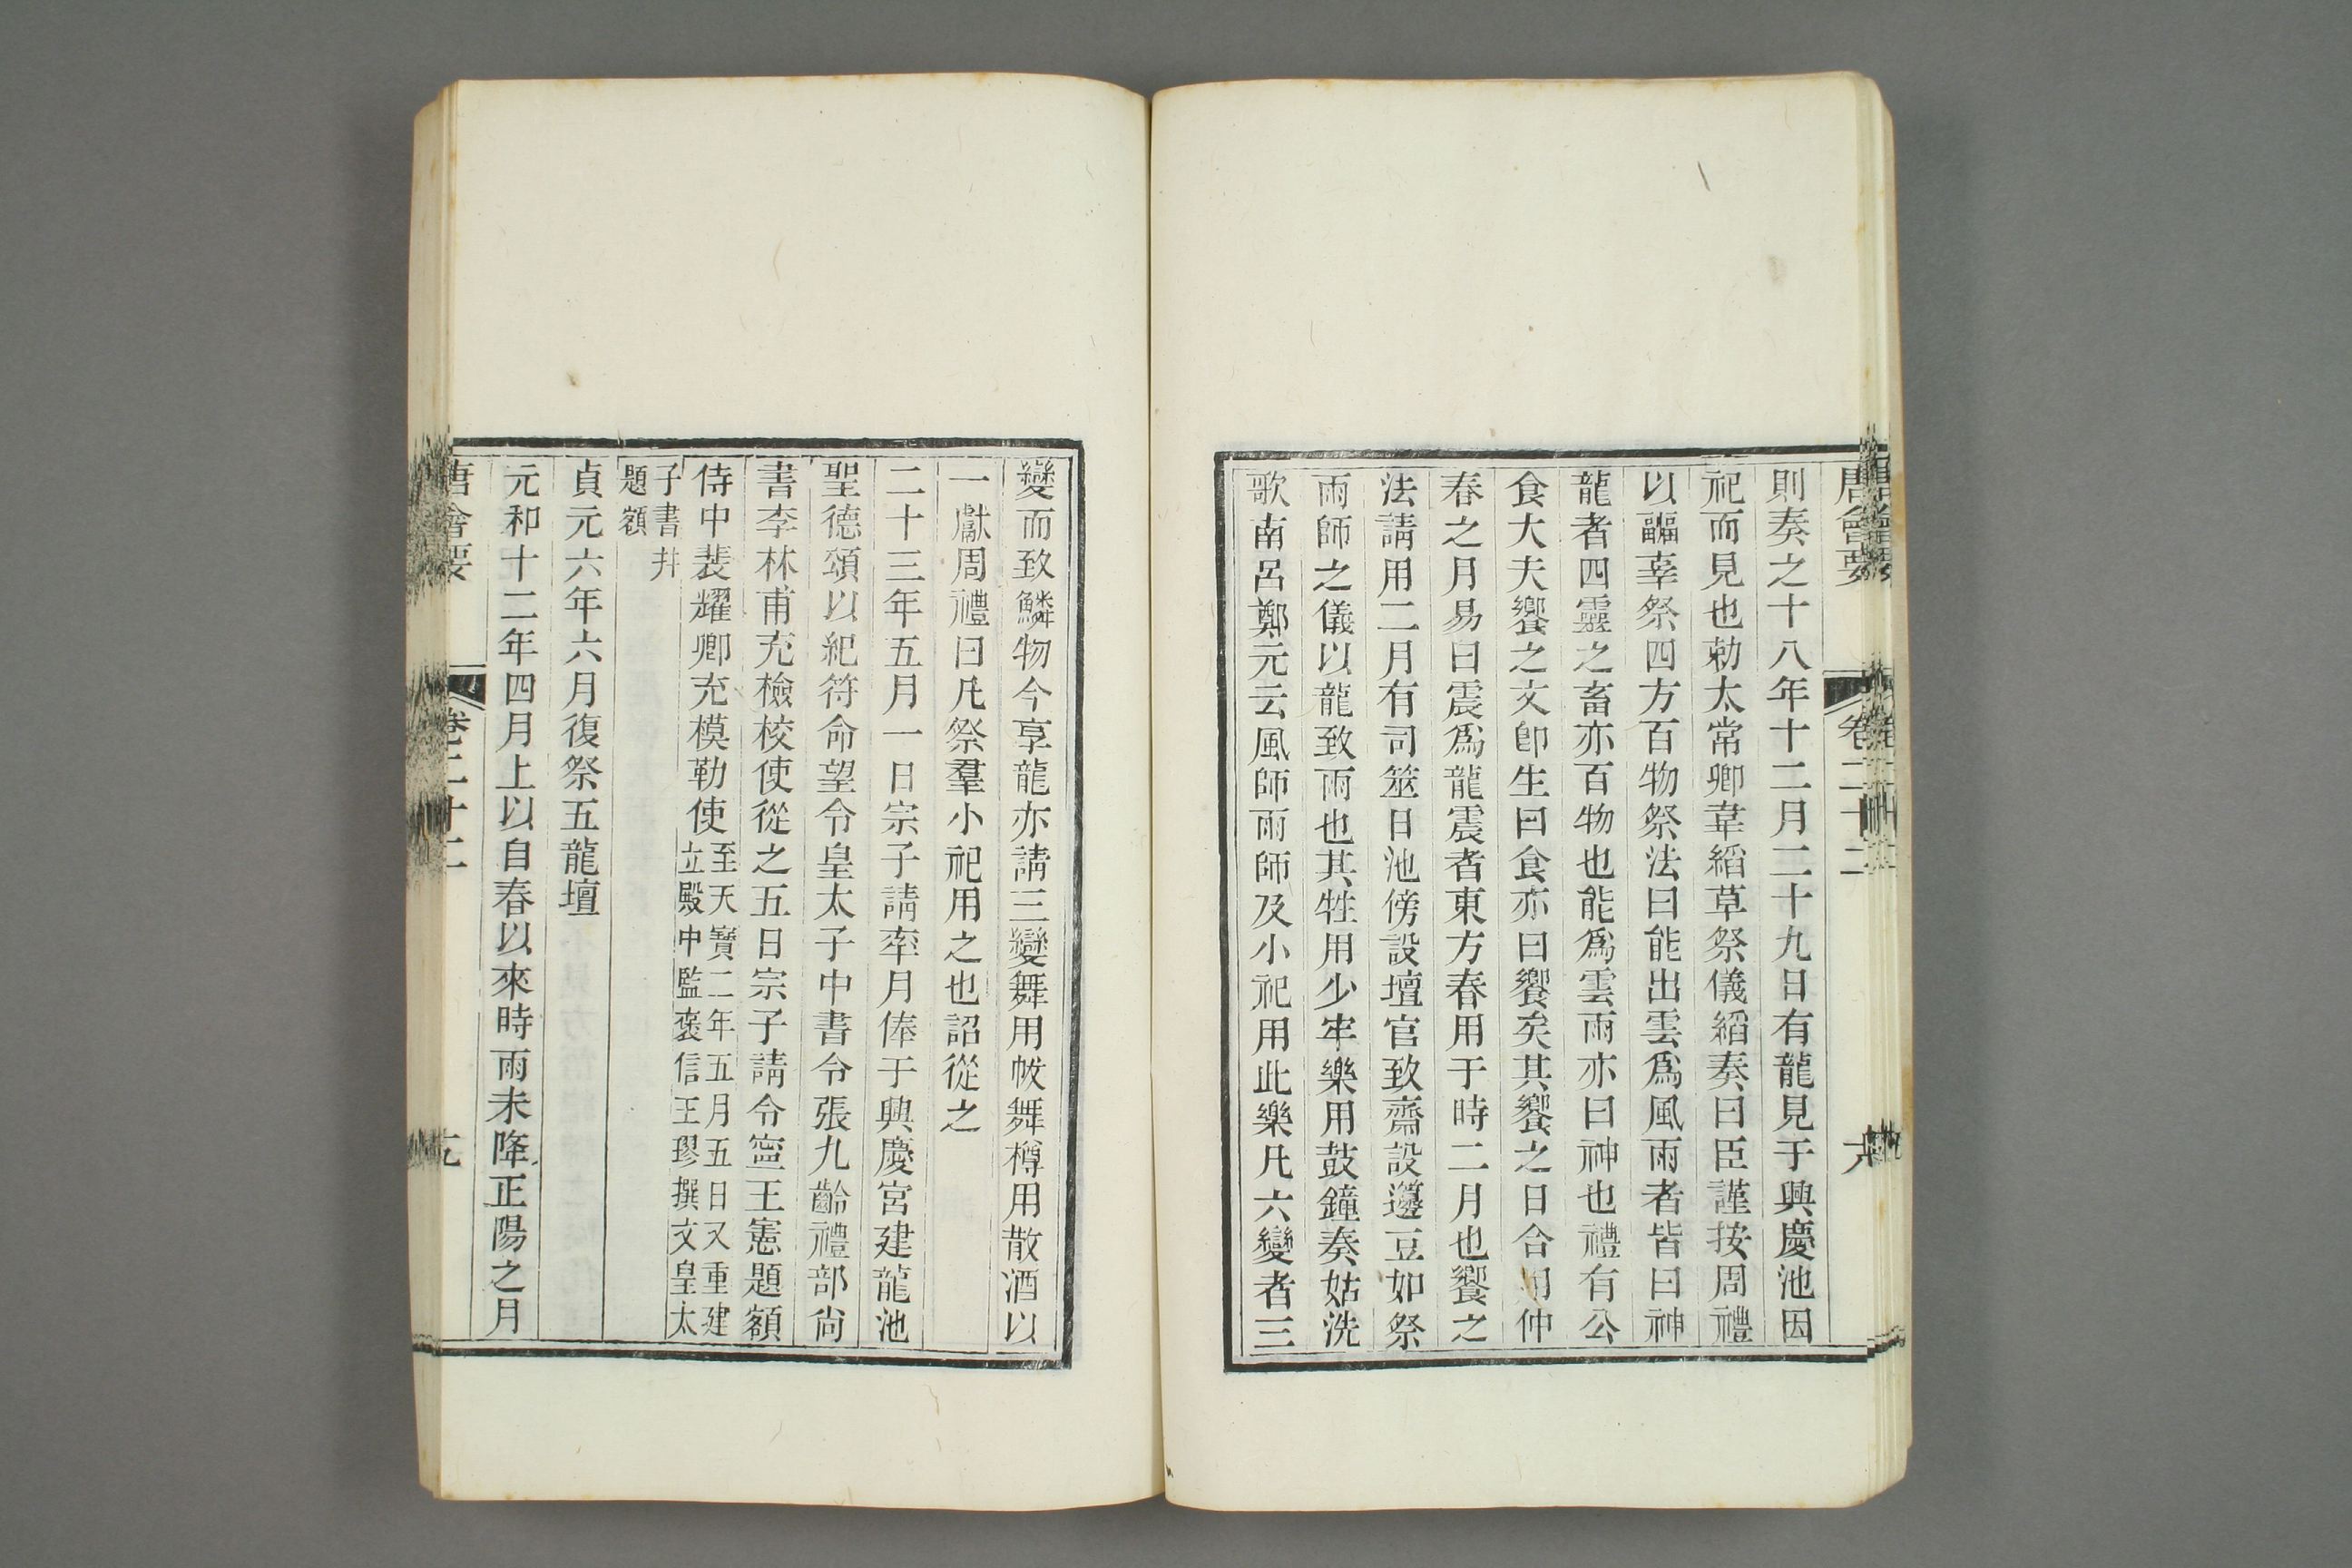 唐會要 卷二十二
則奏之十八年十二月二十九日有龍見于興慶池因
祀而見也勅太常卿韋縚草祭儀縚奏曰臣謹按周禮
以疈辜祭四方百物祭法曰能出雲爲風雨者皆曰神
龍者四靈之畜亦百物也能爲雲雨亦曰神也禮有公
食大夫饗之文卽生曰食亦曰饗矣其饗之日合用仲
春之月易曰震爲龍震者東方春用于時二月也饗之
法請用二月有司筮日池傍設壇官致齋設籩豆如祭
雨師之儀以龍致雨也其牲用少牢樂用鼓鐘奏姑洗
歌南呂鄭元云風師雨師及小祀用此樂凡六變者三
變而致鱗物今享龍亦請三變舞用帗舞樽用散酒以
一獻周禮曰凡祭羣小祀用之也詔從之
二十三年五月一日宗子請率月俸于興慶宮建龍池
聖德頌以紀符命望令皇太子中書令張九齡禮部尙
書李林甫充檢校使從之五日宗子請令寧王憲題額
侍中裴耀卿充模勒使至天寶二年五月五日又重建
立殿中監褒信王璆撰文皇太
子書幷
題額
貞元六年六月復祭五龍壇
元和十二年四月上以自春以來時雨未降正陽之月
唐會要 卷二十二